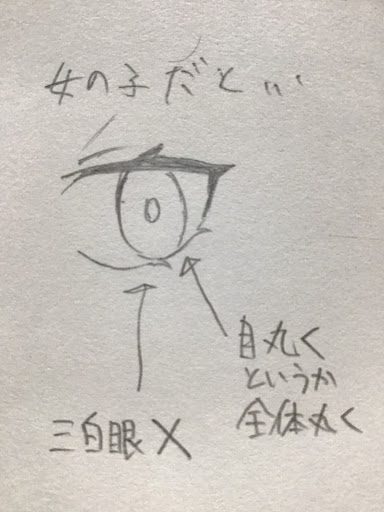 女の子だと…
目丸く
というか
全体丸く
三白眼×